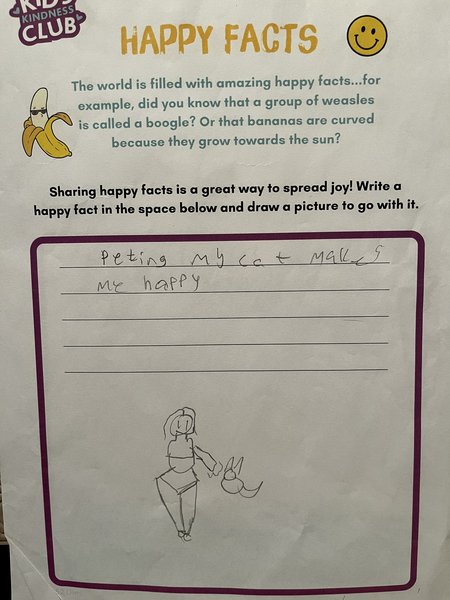 KIDS
KINDNESS
CLUB
HAPPY FACTS
The world is filled with amazing happy facts...for
example, did you know that a group of weasles
is called a boogle? Or that bananas are curved
because they grow towards the sun?
Sharing happy facts is a great way to spread joy! Write a
happy fact in the space below and draw a picture to go with it.
Peting my cat makes
me happy